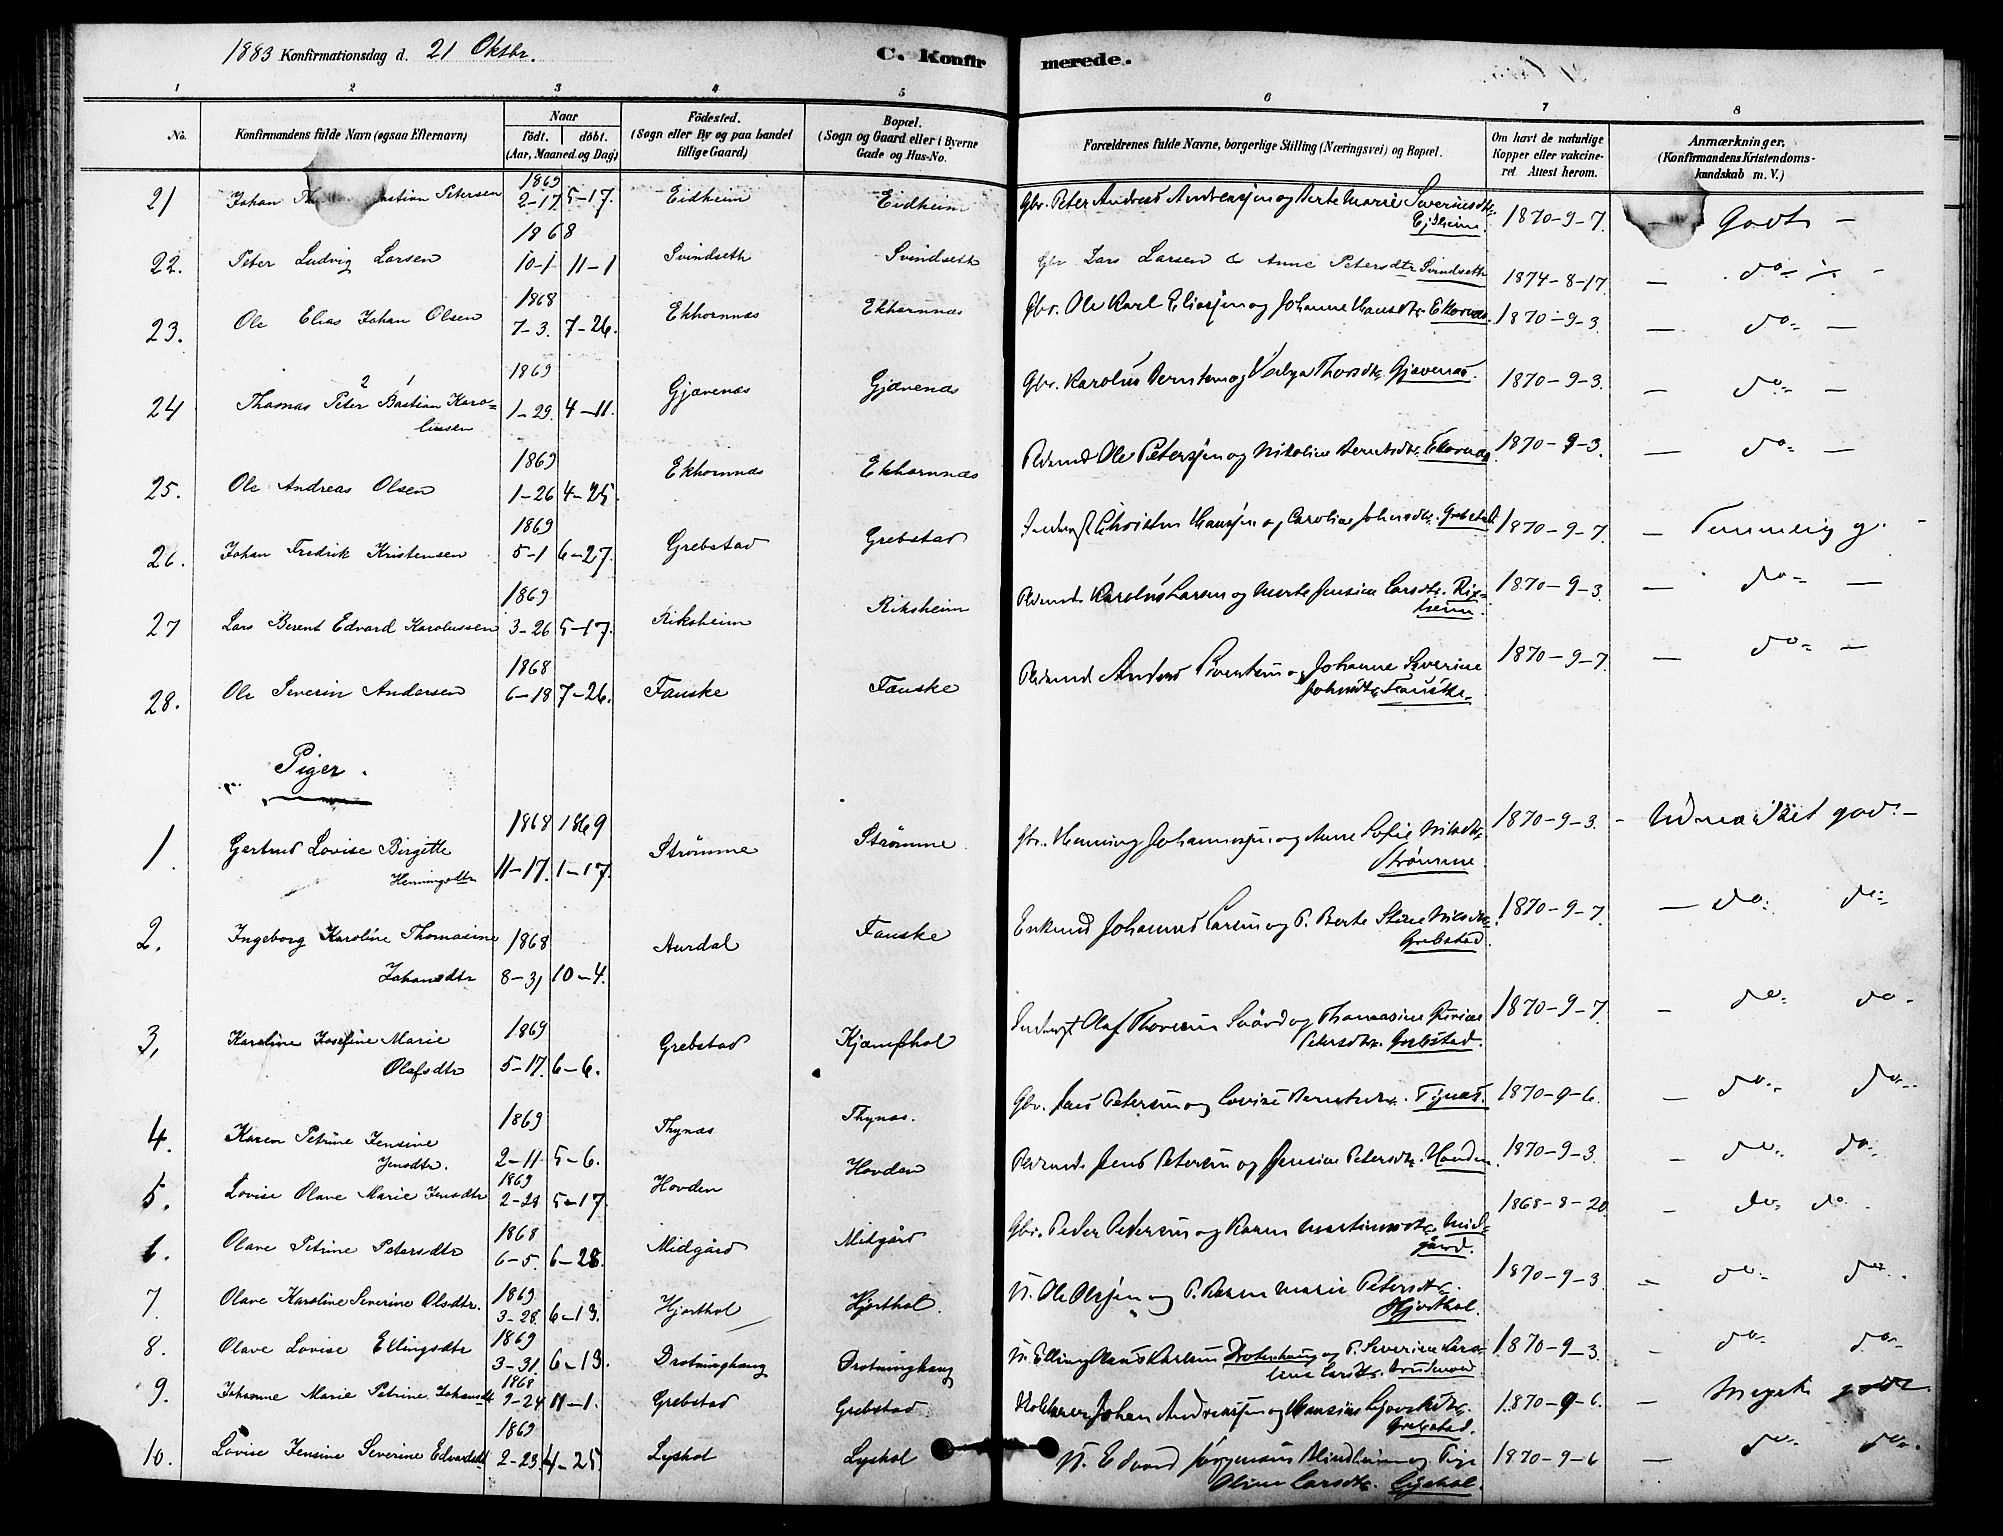 1883 Konfirmationsdag d. 21 Oktbr.
C. Konfirmerede.
1 2 3 4 5 6 7 8
No.
Konfirmandens fulde Navn (ogsaa Efternavn)
Naar
födt. döbt.
(Aar, Maaned og Dag)
Födested.
(Sogn eller By og paa Landet
tillige Gaard)
Bopæl.
(Sogn og Gaard eller i Byerne
Gade og Hus-No.
Forældrenes fulde Navne, borgerlige Stilling (Næringsvei) og Bopæl.
Om havt de naturlige
Kopper eller vakcine-
ret Attest herom.
Anmærkninger.
(Konfirmandens Kristendoms-
kundskab m. V.)
21 Johan Petersen 1869 2-17 5-17. Eidheim Eidheim Gbr. Peter Andreas Andreassen og Berte Marie Severinsdtr. Ejdheim. 1870-9-7. Godt -
22. Peter Ludvig Larsen 1868 10-1 11-1 Svindseth Svindseth Gbr Lars Larsen & Anne Petersdtr Svindseth 1874-8-17. - do -
23. Ole Elias Johan Olsen 1868 7-3. 7-26. Ekhornnæs Ekhornnæs Gbr. Ole Karl Eliassen og Johanne Hansdtr. Ekornæs. 1870-9-3. - do -
24 Thomas Peter Bastian Karo-
linsen 1869 1-29. 4-11. Gjævenæs Gjævenæs Gbr. Karolus Berntsen og Thorsdtr. Gjævenæs. 1870-9-3. - do -
25. Ole Andreas Olsen 1869 1-26 4-25. Ekhornnæs Ekhornnæs Ole Petersen og Nikoline Berntsdtr. Ekornæs. 1870-9-3. - do -
26. Johan Fredrik Kristensen 1869 5-1 6-27. Grebstad Grebstad Christen Hansen og Caroline Johnsdtr. Grebstad. 1870-9-7. Temmelig g. -
27 Lars Berent Edvard Karolussen 1869 3-26 5-17. Riksheim Riksheim Karolus Larsen og Marte Jensine Larsdtr. Rix-
heim. 1870-9-3. - do -
28. Ole Severin Andersen 1868 6-18 7-26. Fauske Fauske Anders og Johanne Severine
Johnsdtr. Fauske. 1870-9-7. - do -
Piger.
1. Gertrud Lovise Birgitte
Henningsdtr 1868 11-17. 1869 1-17. Strømme Strømme Gbr. Henning Johannessen og Anne Sofie Nilsdtr.
Strømme. 1870-9-3. - Udmærket god. -
2. Ingeborg Karoline Thomasine
Johansdtr 1868 8-31 10-4. Aurdal Fauske Enkemd Johannes Larsen og P. Berte Stine Nilsdtr.
Grebstad. 1870-9-7. - do. do.
3. Karoline Josefine Marie
Olafsdtr 1869 5-17. 6-6. Grebstad Kjæmphol Olaf Thoresen og Thomasine
Petersdtr. Grebstad. 1870-9-7. - do. do.
4. Karen Petrine Jensine
Jensdtr. 1869 2-11 5-6. Thynæs Thynæs. Gbr. Jens Petersen og Lovise Berntsdtr. Tynæs. 1870-9-6. - do. do.
5. Lovise Olave Marie Jensdtr 1869 2-28 5-17. Hovden Hovden Jens Petersen og Jensine Petersdtr. Hovden. 1870-9-3. - do. do.
6. Olave Petrine Petersdtr 1868 6-5. 6-28. Midgård Midgård Gbr. Peder Pedersen og Karen Martinusdtr. Mid-
gård. 1868-8-20. - do. do.
7. Olave Karoline Severine Olsdtr. 1869 3-28. 6-13. Hjorthol Hjorthol. U. Ole Olsen og P. Karen Marie Petersdtr.
Hjorthol. 1870-9-3 - do. do.
8. Olave Lovise Ellingsdtr 1869 3-31. 6-13. Drotninghaug Drotninghaug U. Elling og P. Severine
Larsdtr. 1870-9-3. - do. do.
9. Johanne Marie Petrine Johansdtr 1868 9-24 11-1. Grebstad Grebstad Johan Andreassen og
Grebstad. 1870-9-6. - Meget god.
10. Lovise Jensine Severine Edvardsdtr 1869 2-23. 4-25. Lyshol Lyshol U. Edvard Jørgensen Blindheim og Pige
Oline Larsdtr. Lyshol. 1870-9-6 - do. do.